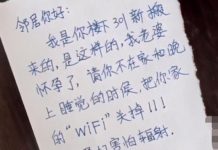 邻居你好:
我是你楼下301新搬
来的,是这样的,我老婆
怀孕了,请你不在家和晚
上睡觉的时候,把你家
的"WiFi"关掉!!!
害怕辐射.